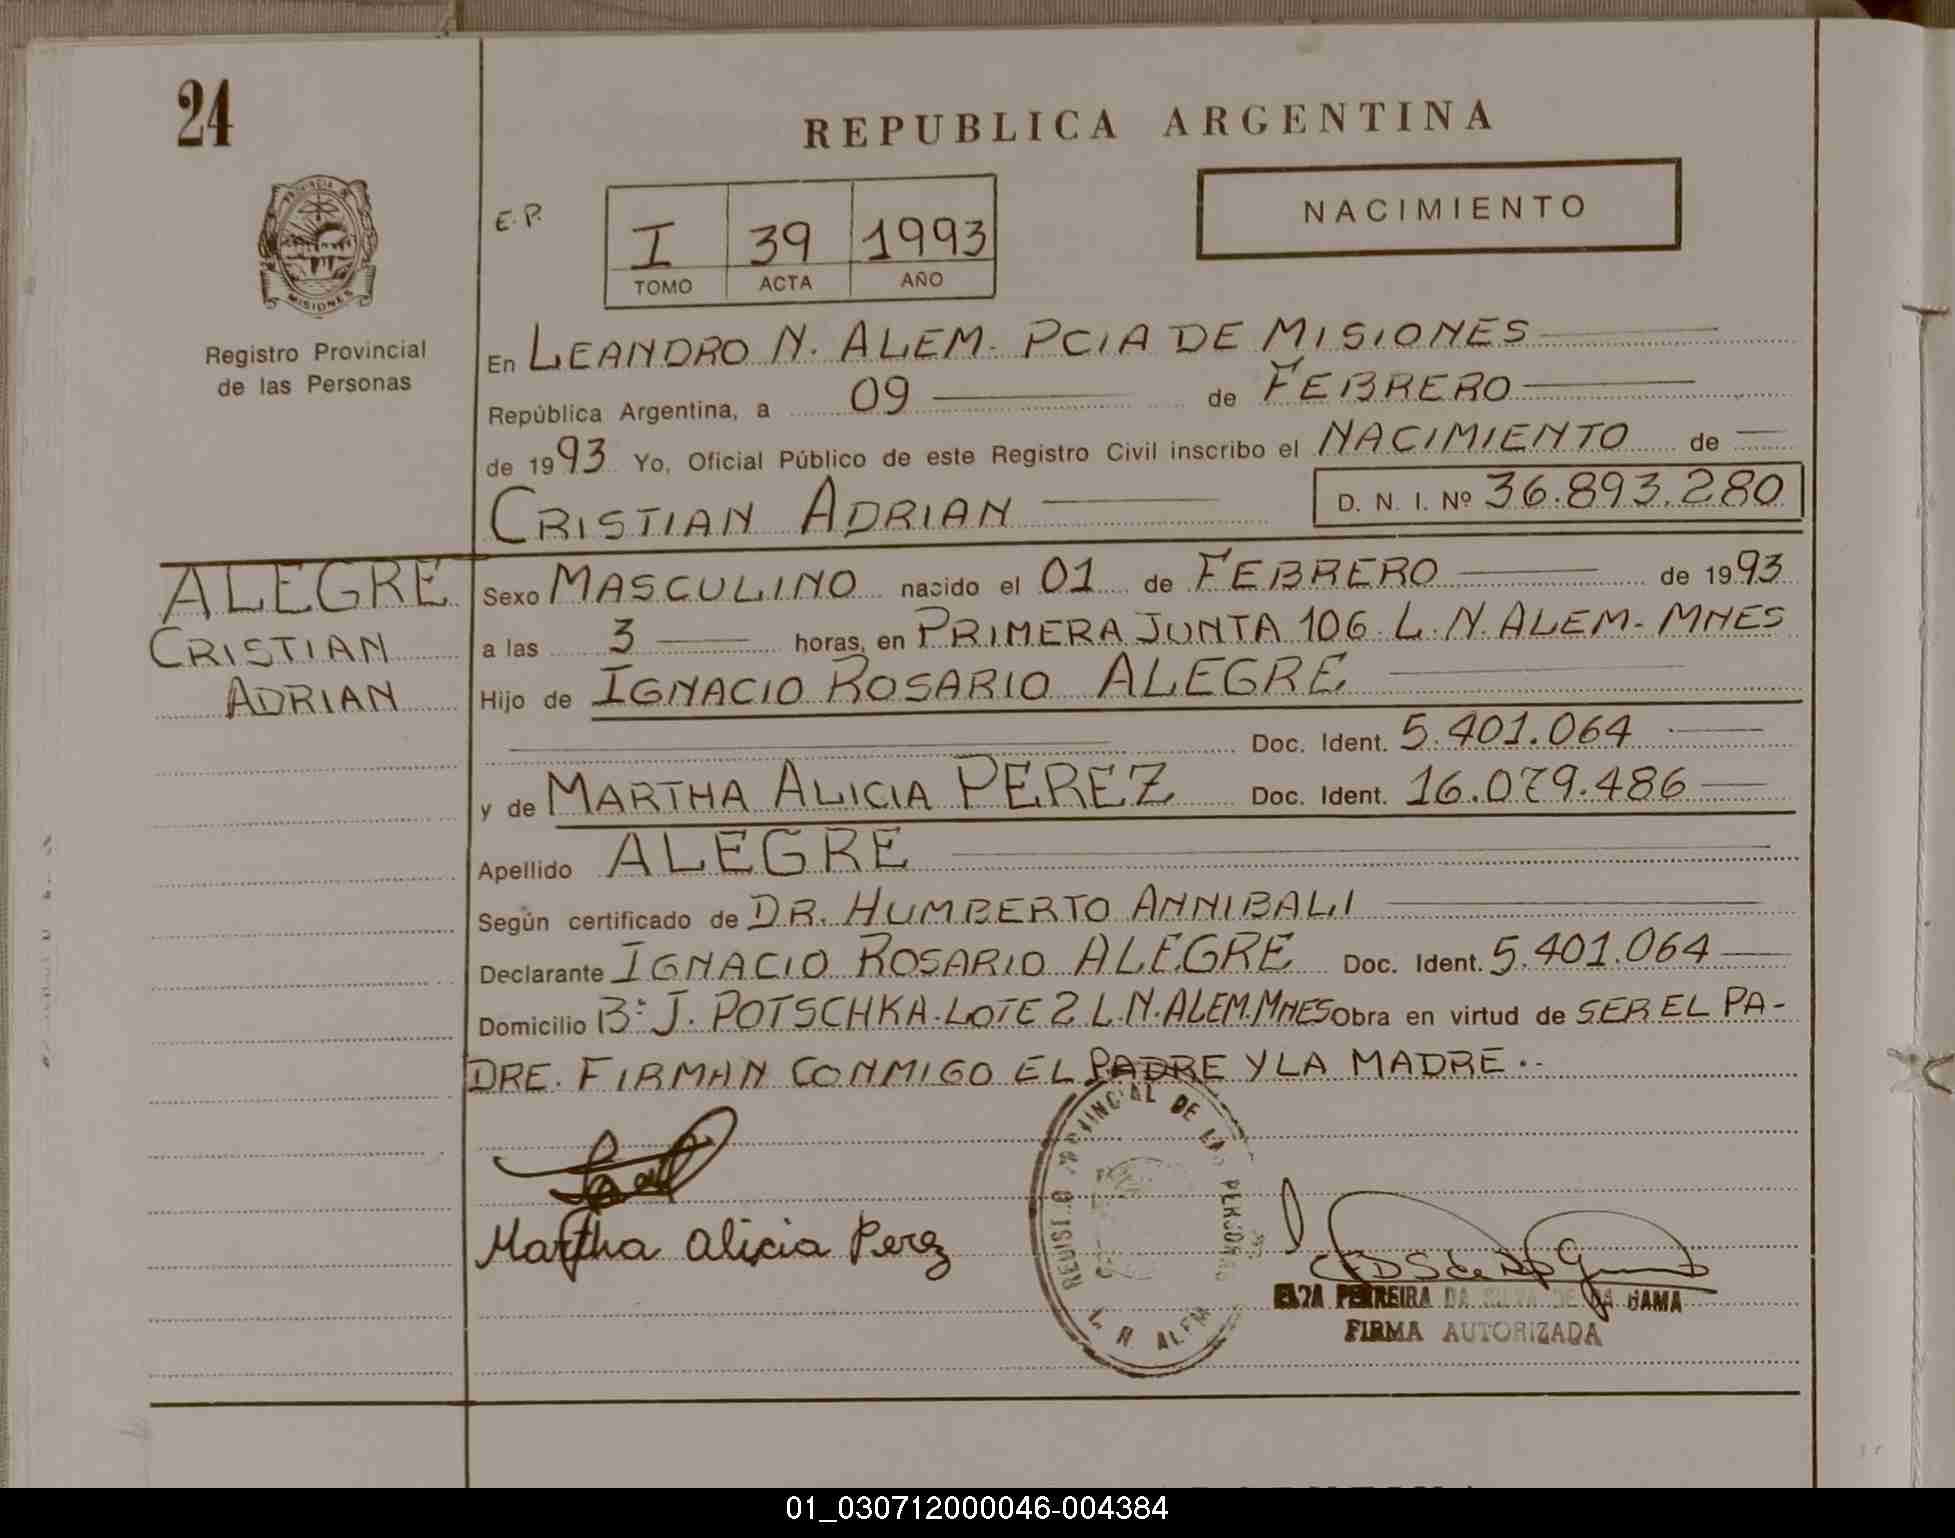 24
REPUBLICA ARGENTINA
PROVINCIA DE
MISIONES
Registro Provincial
de las Personas
E.P.
I 39 1993
TOMO ACTA AÑO
NACIMIENTO
En LEANDRO N. ALEM. PCIA DE MISIONES
República Argentina, a 09 de FEBRERO
de 1993 Yo, Oficial Público de este Registro Civil inscribo el NACIMIENTO de
CRISTIAN ADRIAN D. N. I. Nº 36.893.280
ALEGRE
CRISTIAN
ADRIAN
Sexo MASCULINO nacido el 01 de FEBRERO de 1993
a las 3 horas, en PRIMERA JUNTA 106 L.N. ALEM. MNES
Hijo de IGNACIO ROSARIO ALEGRE
Doc. Ident. 5.401.064
y de MARTHA ALICIA PEREZ Doc. Ident. 16.079.486
Apellido ALEGRE
Según certificado de DR. HUMBERTO ANNIBALI
Declarante IGNACIO ROSARIO ALEGRE Doc. Ident. 5.401.064
Domicilio Bº J. POTSCHKA. LOTE 2 L.N. ALEM. MNES Obra en virtud de SER EL PA-
DRE. FIRMAN CONMIGO EL PADRE Y LA MADRE.-
Martha Alicia Perez
REGISTRO PROVINCIAL DE LAS PERSONAS
L. N. ALEM
FERREIRA DA SILVA DE DA GAMA
FIRMA AUTORIZADA
01_030712000046-004384